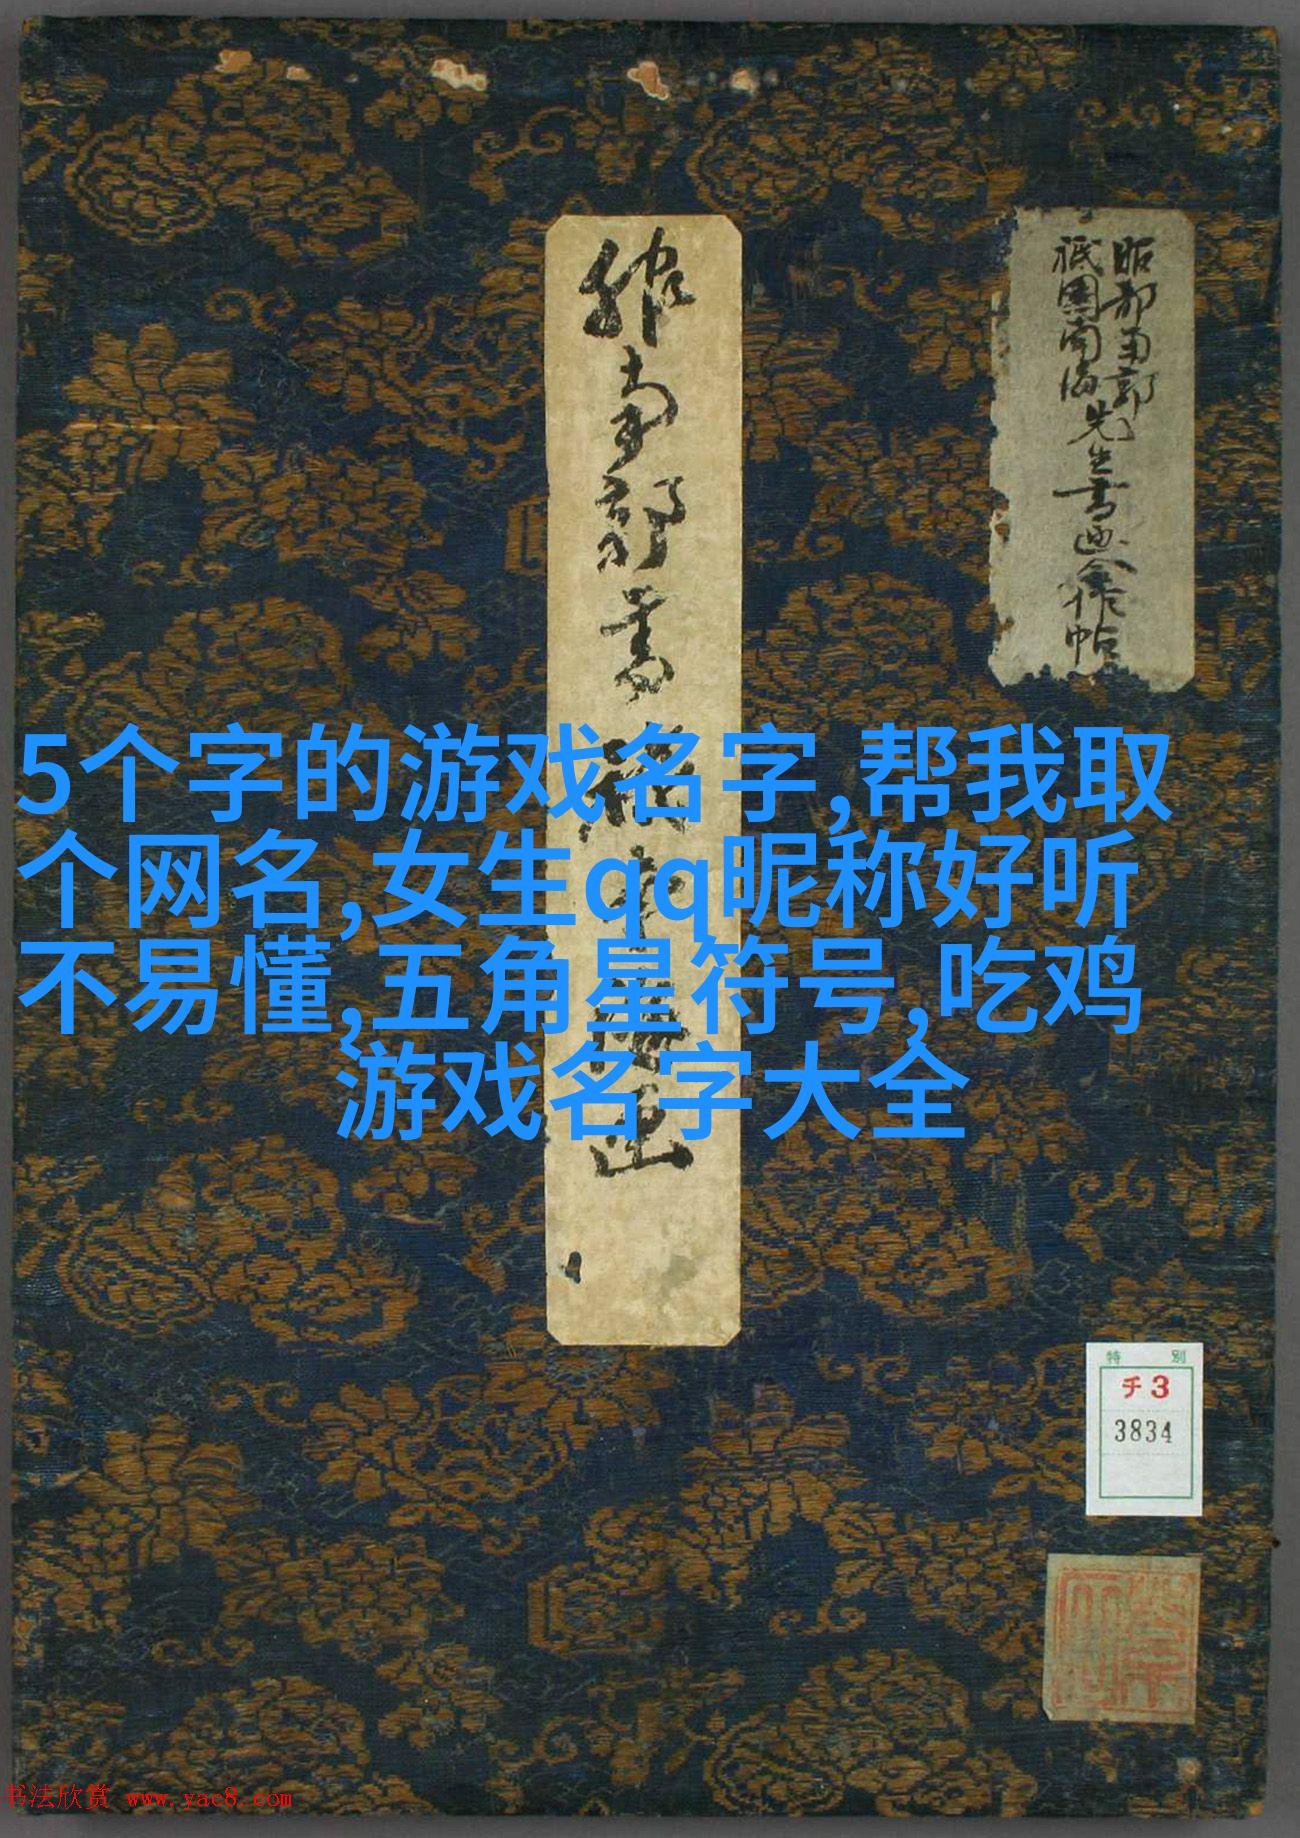 5个字的游戏名字,帮我取
个网名,女生qq昵称好听
不易懂,五角星符号,吃鸡
游戏名字大全
服南郭書祇
画
昭部南郭
祇園南海先生書画合作帖
特 別
チ3
3834
书法欣赏 www.yac8.com